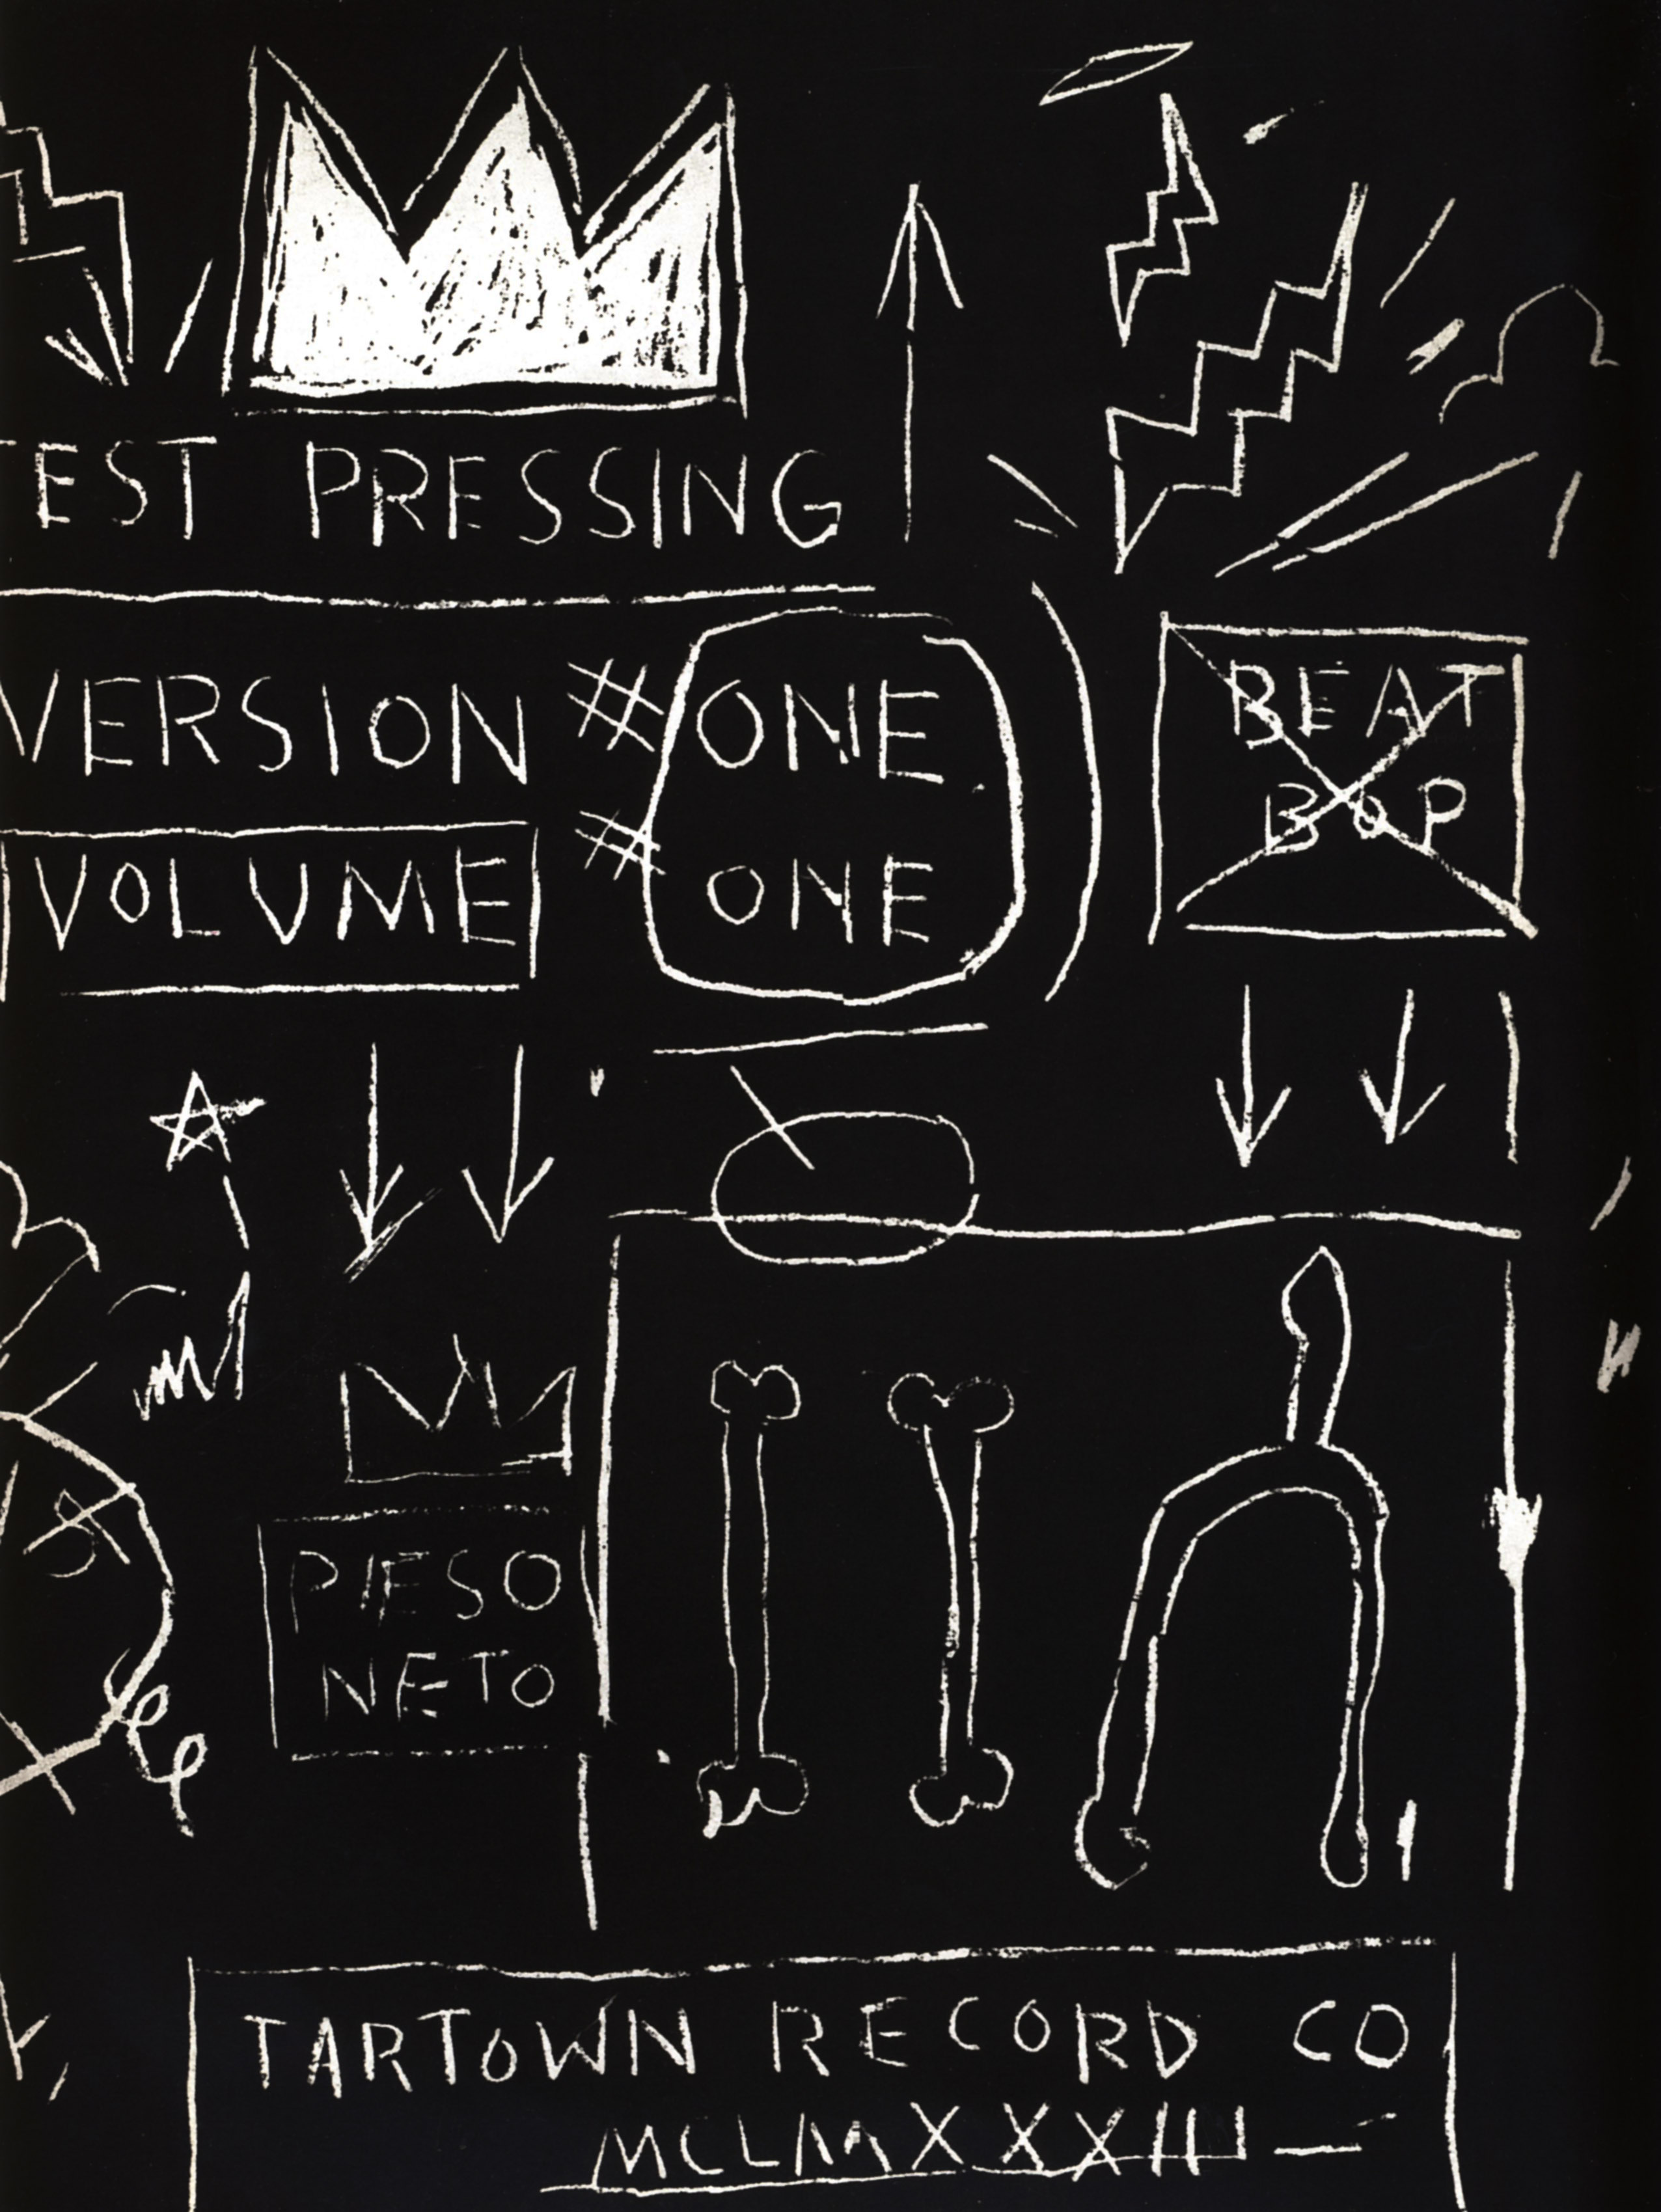 TEST PRESSING
VERSION # ONE
VOLUME # ONE
BEAT
BOP
PIESO
NETO
TARTOWN RECORD CO
MCLMXXXIII